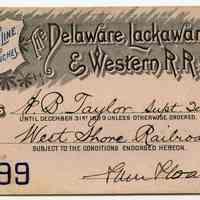 LINE
The Delaware, Lackawan
& Western R.R.
B Taylor Supt
UNTIL DECEMBER 31ST 1899 UNLESS OTHERWISE ORDERED.
West Shore Railroa
SUBJECT TO THE CONDITIONS ENDORSED HEREON.
Sam Sloa
99